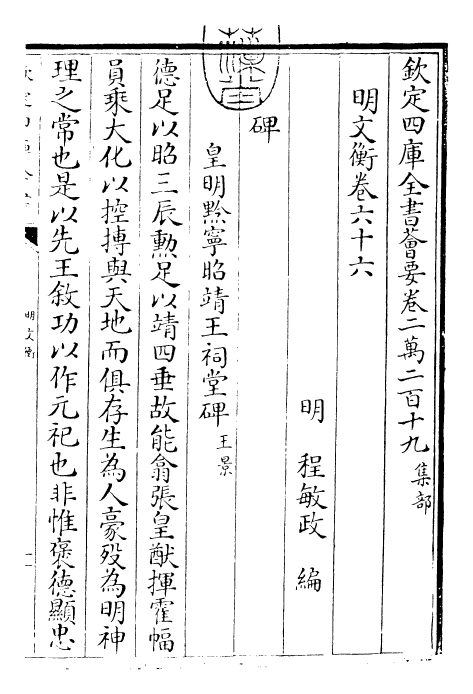 欽定四庫全書薈要卷二萬二百十九 集部
明文衡卷六十六
明 程敏政 編
碑
皇明黔寧昭靖王祠堂碑 王景
德足以昭三辰勲足以靖四垂故能翕張皇猷揮霍幅
員乘大化以控摶與天地而俱存生為人豪殁為明神
理之常也是以先王敘功以作元祀也非惟褒德顯忠
明文衡